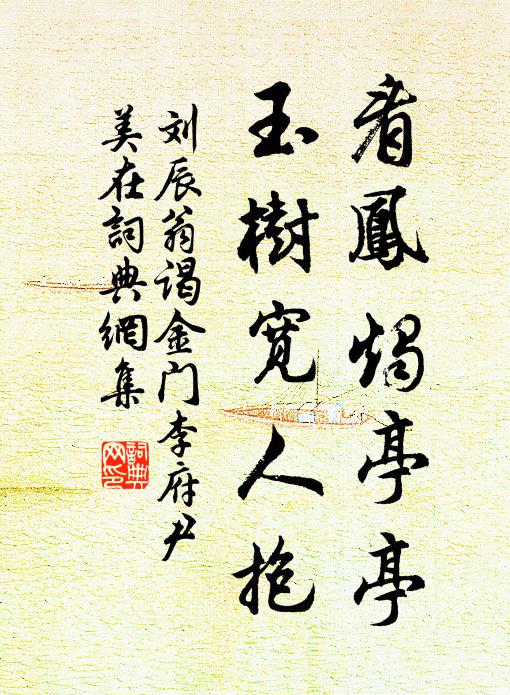 看鳳燭亭亭
玉樹寬人抱
刘辰翁谒金门李府尹
美在詞典網集
詞典
网印